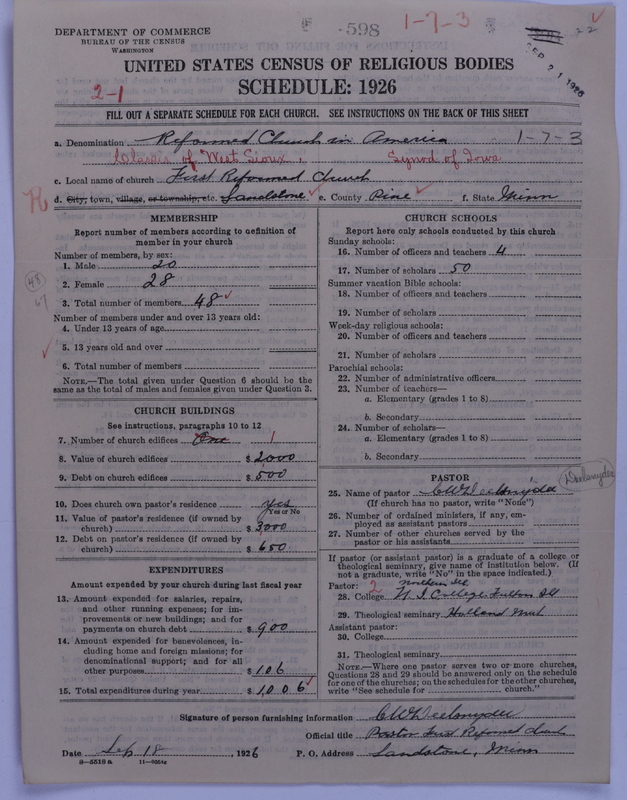 DEPARTMENT OF COMMERCE
BUREAU OF THE CENSUS
WASHINGTON
598
1-7-3
22
SEP 21 1926
UNITED STATES CENSUS OF RELIGIOUS BODIES
SCHEDULE: 1926
2-1
FILL OUT A SEPARATE SCHEDULE FOR EACH CHURCH. SEE INSTRUCTIONS ON THE BACK OF THIS SHEET
a. Denomination Reformed Church in America 1-7-3
Classis of West Sioux, Synod of Iowa
c. Local name of church First Reformed Church
R
d. City, town, village, or township, etc. Sandstone e. County Pine f. State Minn
MEMBERSHIP
Report number of members according to definition of
member in your church
Number of members, by sex:
1. Male 20
2. Female 28
3. Total number of members 48
48
67
Number of members under and over 13 years old:
4. Under 13 years of age
5. 13 years old and over
6. Total number of members
NOTE.—The total given under Question 6 should be the
same as the total of males and females given under Question 3.
CHURCH BUILDINGS
See instructions, paragraphs 10 to 12
7. Number of church edifices One 1
8. Value of church edifices $ 2,000
9. Debt on church edifices $ 500
10. Does church own pastor's residence Yes
Yes or No
11. Value of pastor's residence (if owned by
church) $ 3,000
12. Debt on pastor's residence (if owned by
church) $ 650
EXPENDITURES
Amount expended by your church during last fiscal year
13. Amount expended for salaries, repairs,
and other running expenses; for im-
provements or new buildings; and for
payments on church debt $ 900
14. Amount expended for benevolences, in-
cluding home and foreign missions; for
denominational support; and for all
other purposes $ 106
15. Total expenditures during year $ 1006
CHURCH SCHOOLS
Report here only schools conducted by this church
Sunday schools:
16. Number of officers and teachers 4
17. Number of scholars 50
Summer vacation Bible schools:
18. Number of officers and teachers
19. Number of scholars
Week-day religious schools:
20. Number of officers and teachers
21. Number of scholars
Parochial schools:
22. Number of administrative officers
23. Number of teachers—
a. Elementary (grades 1 to 8)
b. Secondary
24. Number of scholars—
a. Elementary (grades 1 to 8)
b. Secondary
PASTOR
25. Name of pastor
(If church has no pastor, write "None")
26. Number of ordained ministers, if any, em-
ployed as assistant pastors
27. Number of other churches served by the
pastor or his assistants
If pastor (or assistant pastor) is a graduate of a college or
theological seminary, give name of institution below. (If
not a graduate, write "No" in the space indicated.)
Pastor: 2 Northern Ill
28. College N. I. College Fulton Ill
29. Theological seminary Holland Mich
Assistant pastor:
30. College
31. Theological seminary
NOTE.—Where one pastor serves two or more churches,
Questions 28 and 29 should be answered only on the schedule
for one of the churches; on the schedules for the other churches,
write "See schedule for church."
Signature of person furnishing information
Official title Pastor First Reformed Church
Date Sep 18, 1926 P. O. Address Sandstone, Minn
8—5518 a